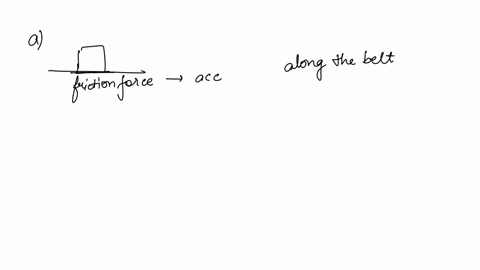 a)
friction force → acc
along the belt